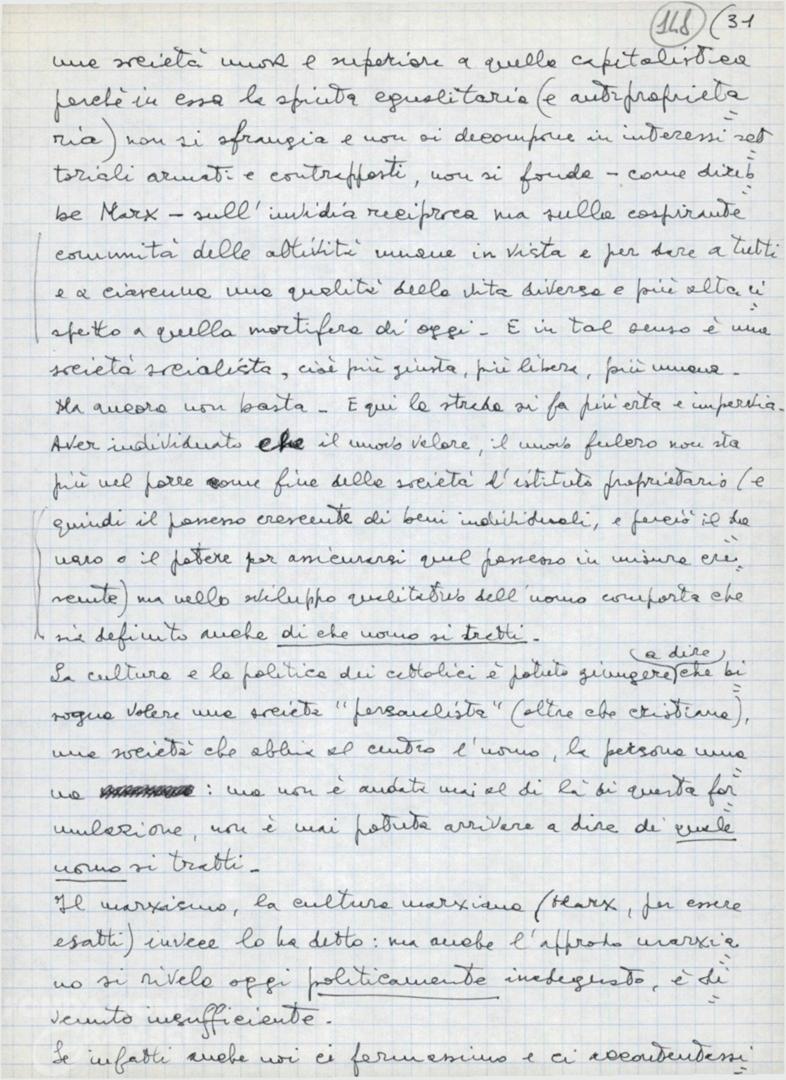 148 (31
una società nuova e superiore a quella capitalistica
perché in essa la spinta egualitaria (e antiproprieta
ria) non si sfrangia e non si decompone in interessi set
toriali armati e contrapposti, non si fonda – come direb
be Marx – sull'invidia reciproca ma sulla cospirante
comunità delle attività umane in vista e per dare a tutti
e a ciascuno una qualità della vita diversa e più alta ri
spetto a quella mortifera di oggi – E in tal senso è una
società socialista, cioè più giusta, più libera, più umana –
Ma ancora non basta – E qui la strada si fa più erta e impervia.
Aver individuato che il nuovo valore, il nuovo fulcro non sta
più nel porre come fine della società l'istituto proprietario (e
quindi il possesso crescente di beni individuali, e perciò il da
naro o il potere per assicurarsi quel possesso in misura cre
scente) ma nello sviluppo qualitativo dell'uomo comporta che
sia definito anche di che uomo si tratti –
a dire
La cultura e la politica dei cattolici è potuta giungere che bi
sogna volere una società "personalista" (oltre che cristiana),
una società che abbia al centro l'uomo, la persona uma
na : ma non è andata mai al di là di questa for
mulazione, non è mai potuta arrivare a dire di quale
uomo si tratti –
Il marxismo, la cultura marxiana (Marx, per essere
esatti) invece lo ha detto: ma anche l'approdo marxia
no si rivela oggi politicamente inadeguato, è di
venuto insufficiente.
Se infatti anche noi ci fermassimo e ci accontentassi